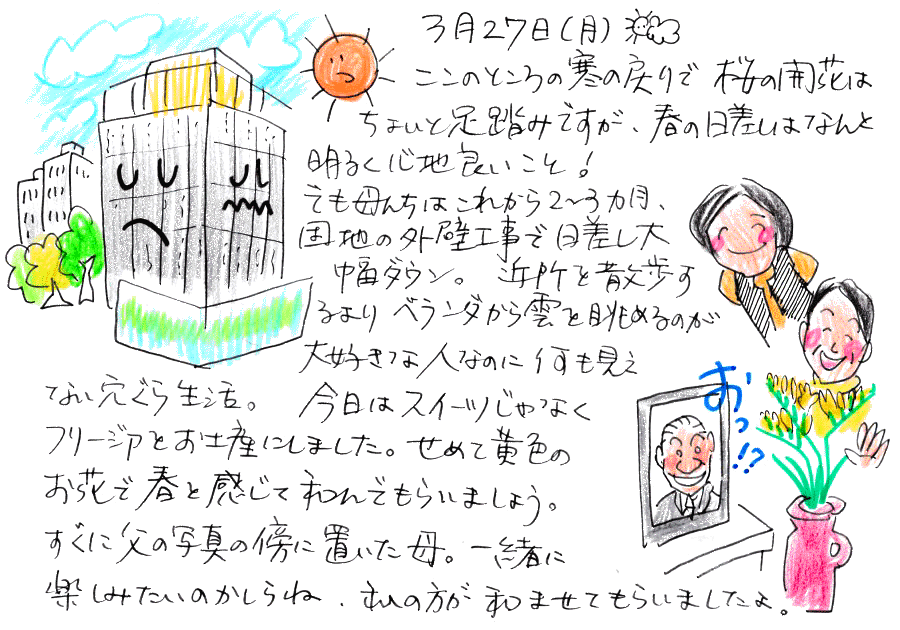 3月27日(月)
ここのところの寒の戻りで 桜の開花は
ちょいと足踏みですが、春の日差しはなんと
明るく心地良いこと!
でも母んちはこれから2~3カ月、
団地の外壁工事で日差し大
幅ダウン。 近所を散歩す
るより ベランダから雲を眺めるのが
大好きな人なのに 何も見え
ない穴ぐら生活。 今日はスイーツじゃなく
フリージアをお土産にしました。せめて黄色の
お花で春を感じて和んでもらいましょう。
すぐに父の写真の傍に置いた母。一緒に
楽しみたいのかしらね、私の方が和ませてもらいましたよ。
おっ!?